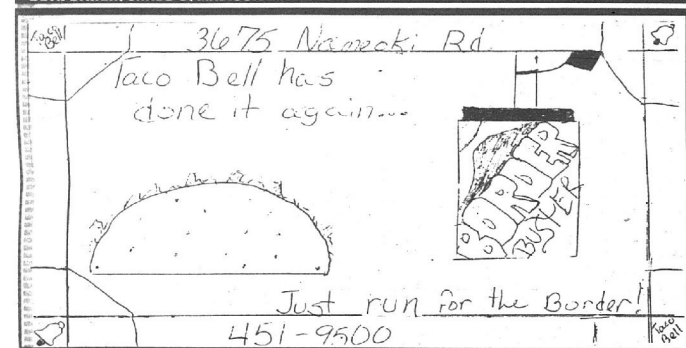 Taco Bell
3675 Nameoki Rd.
Taco Bell has
done it again...
BORDER
BUSTER
Just run for the Border!
451-9500
Taco
Bell